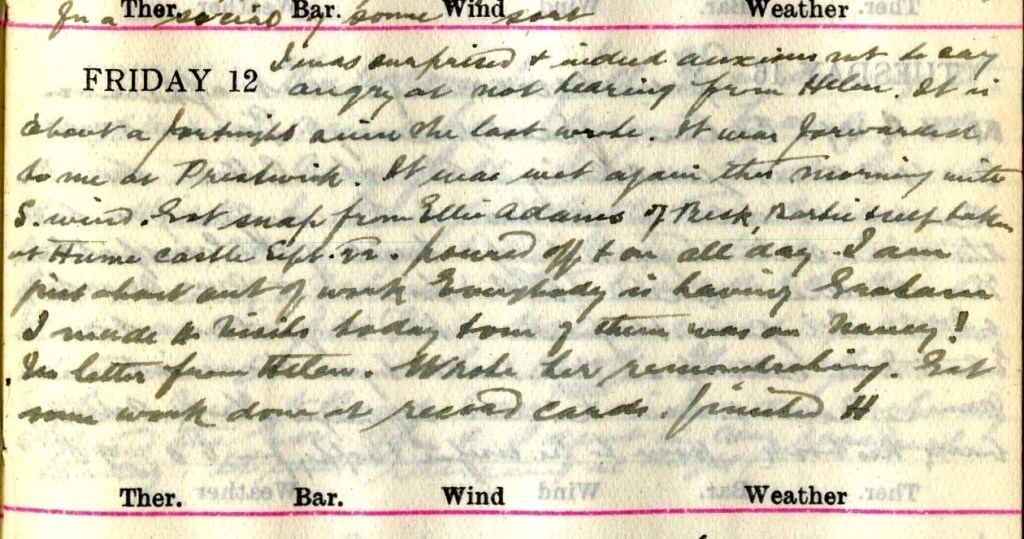 In a social of some sort
Ther. Bar. Wind Weather
I was surprised & indeed anxious not to say
FRIDAY 12 angry at not hearing from Helen. It is
about a fortnight since she last wrote. It was forwarded
to me at Prestwick. It was wet again this morning with
S. wind. Got snap from Ellie Adams of self taken
at Hume castle Sept. 22. poured off & on all day. I am
just about out of work Everybody is having
I made visits today & one of them was on Nancy!
No letter from Helen. Wrote her remonstrating. Got
some work done at record cards. finished H
Ther. Bar. Wind Weather